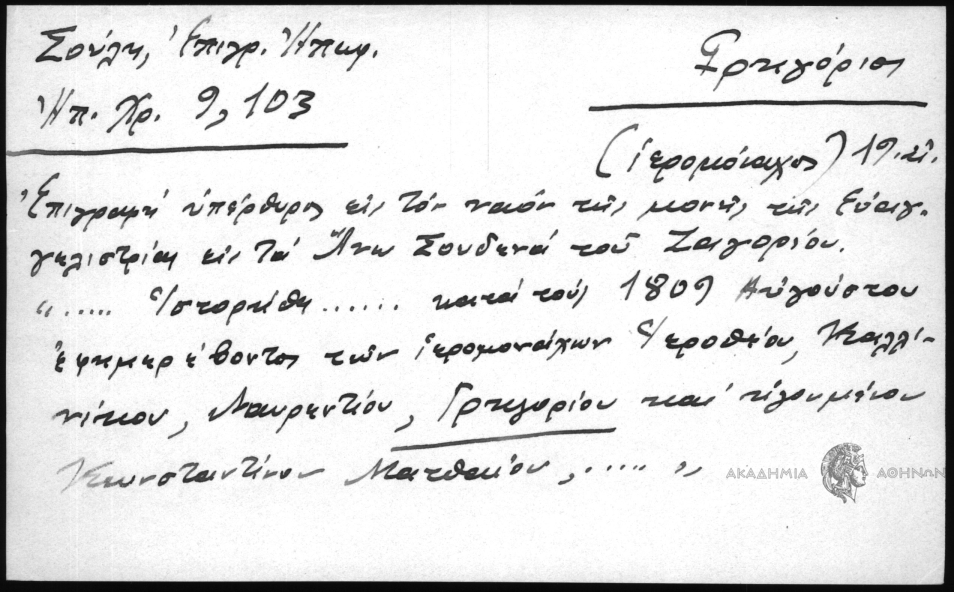 Σούλη, Ἐπιγρ. Ἠπειρ.
Ἠπ. Χρ. 9, 103
Γρηγόριος
(ἱερομόναχος) 19. αἰ.
Ἐπιγραφή ὑπέρθυρος εἰς τόν ναόν τῆς μονῆς τῆς Εὐαγ-
γελιστρίας εἰς τά Ἄνω Σουδενά τοῦ Ζαγορίου.
"..... Ἱστορήθη...... κατά τούς 1809 Αὐγούστου
ἐφημερέβοντος τῶν ἱερομονάχων Ἱεροθέου, Καλλι-
νίκου, Λαυρεντίου, Γρηγορίου καί ἡγουμένου
Κωνσταντίνου Ματθαίου, ..... "
ΑΚΑΔΗΜΙΑ ΑΘΗΝΩΝ